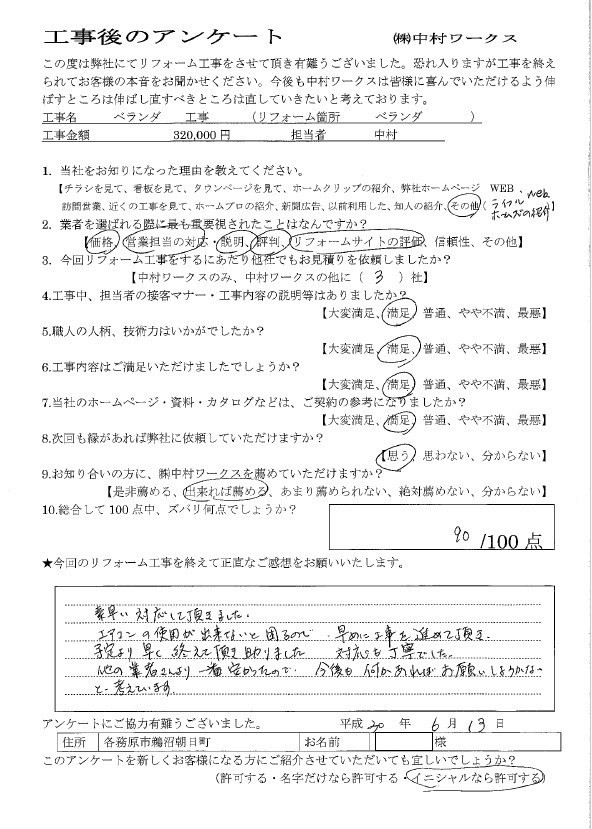 工事後のアンケート ㈱中村ワークス
この度は弊社にてリフォーム工事をさせて頂き有難うございました。恐れ入りますが工事を終え
られてお客様の本音をお聞かせください。今後も中村ワークスは皆様に喜んでいただけるよう伸
ばすところは伸ばし直すべきところは直していきたいと考えております。
工事名 ベランダ 工事 (リフォーム箇所 ベランダ )
工事金額 320,000円 担当者 中村
1. 当社をお知りになった理由を教えてください。
【チラシを見て、看板を見て、タウンページを見て、ホームクリップの紹介、弊社ホームページ WEB・web
訪問営業、近くの工事を見て、ホームプロの紹介、新聞広告、以前利用した、知人の紹介、その他(
ホームズの紹介
2. 業者を選ばれる際に最も重要視されたことはなんですか?
【価格、営業担当の対応・説明、評判、リフォームサイトの評価、信頼性、その他】
3. 今回リフォーム工事をするにあたり他社でもお見積りを依頼しましたか?
【中村ワークスのみ、中村ワークスの他に( 3 )社】
4.工事中、担当者の接客マナー・工事内容の説明等はありましたか?
【大変満足、満足、普通、やや不満、最悪】
5.職人の人柄、技術力はいかがでしたか?
【大変満足、満足、普通、やや不満、最悪】
6.工事内容はご満足いただけましたでしょうか?
【大変満足、満足、普通、やや不満、最悪】
7.当社のホームページ・資料・カタログなどは、ご契約の参考になりましたか?
【大変満足、満足、普通、やや不満、最悪】
8.次回も縁があれば弊社に依頼していただけますか?
【思う、思わない、分からない】
9.お知り合いの方に、㈱中村ワークスを薦めていただけますか?
【是非薦める、出来れば薦める、あまり薦められない、絶対薦めない、分からない】
10.総合して100点中、ズバリ何点でしょうか?
90 /100点
★今回のリフォーム工事を終えて正直なご感想をお願いいたします。
素早い対応して頂きました。
エアコンの使用が出来ないと困るので 早めに工事を進めて頂き、
予定より早く終えて頂き助りました 対応も丁寧でした。
他の業者さんより一番安かったので、 今後も何かあればお願いしようかな
と、考えています
アンケートにご協力有難うございました。 平成 20 年 6 月 13 日
住所 各務原市鵜沼朝日町 お名前 様
このアンケートを新しくお客様になる方にご紹介させていただいても宜しいでしょうか?
(許可する・名字だけなら許可する・イニシャルなら許可する)